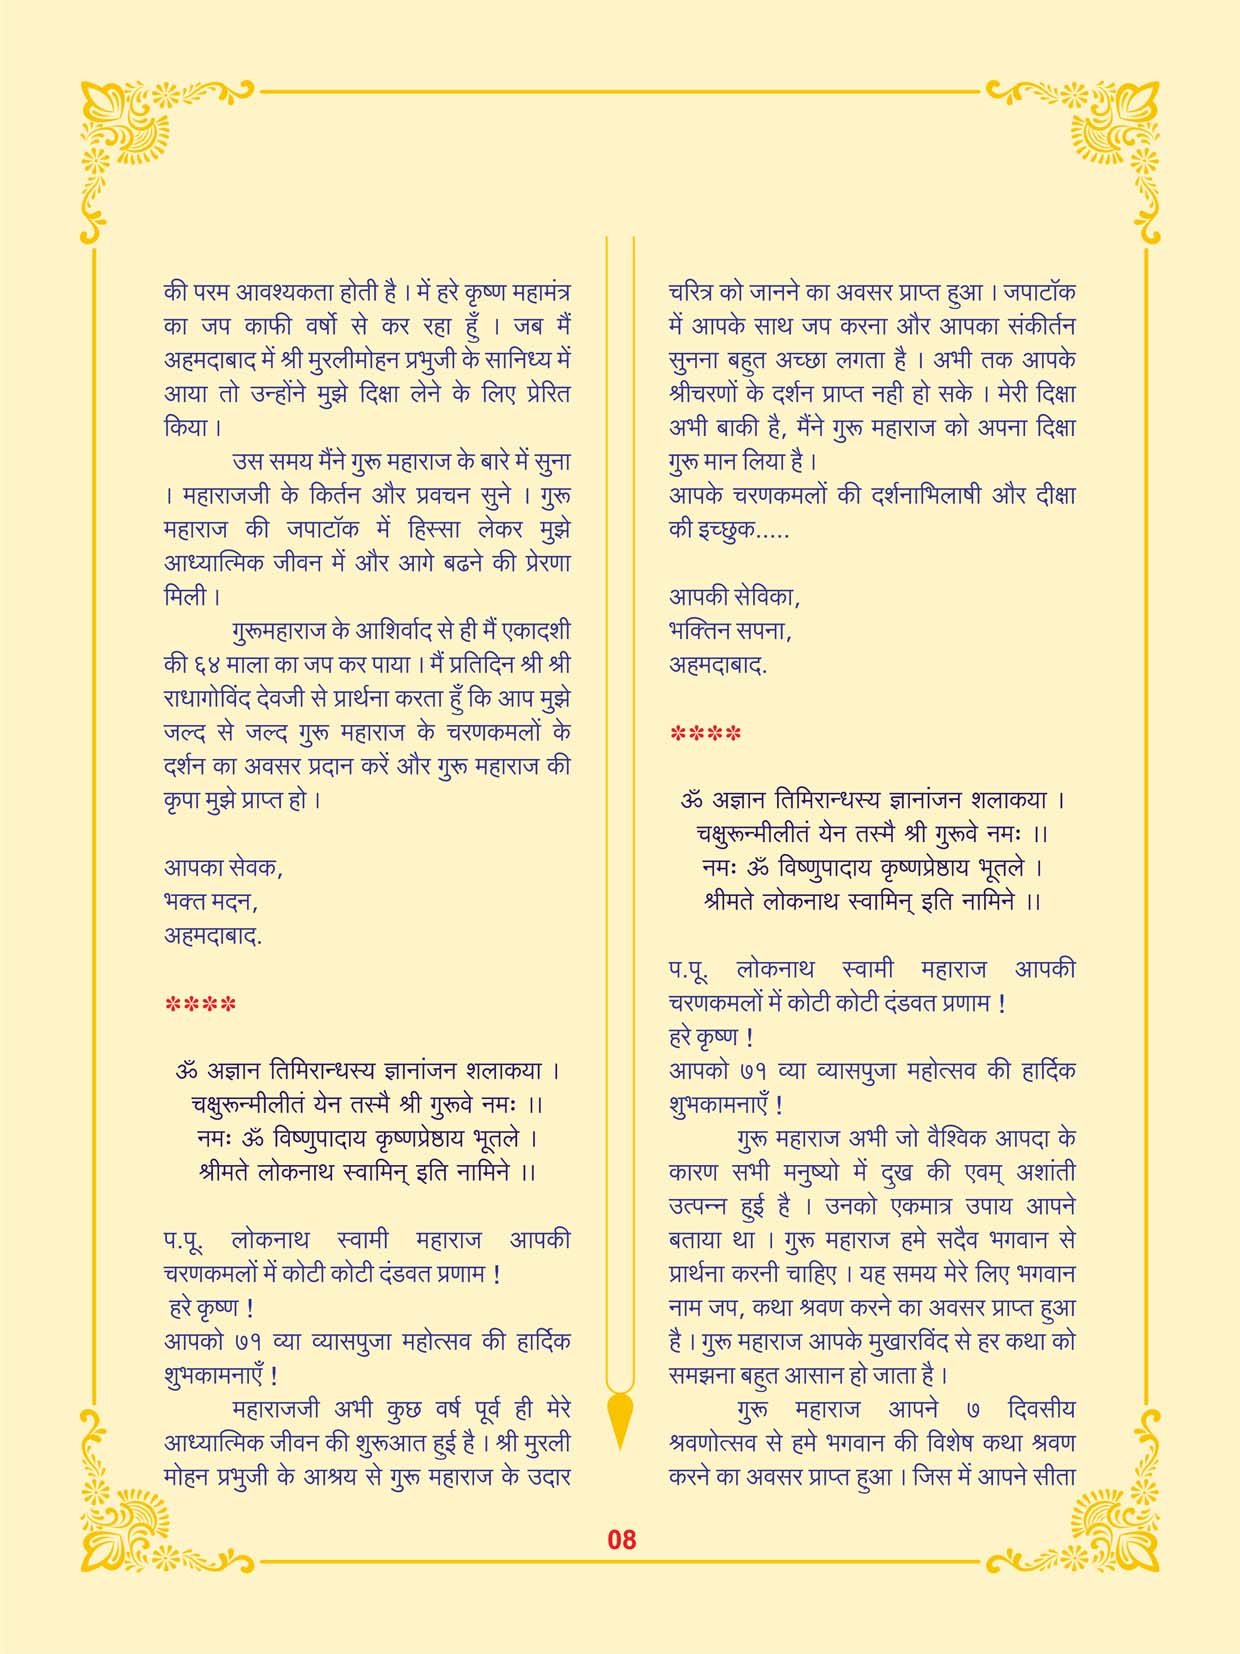 की परम आवश्यकता होती है । में हरे कृष्ण महामंत्र
का जप काफी वर्षो से कर रहा हूँ । जब मैं
अहमदाबाद में श्री मुरलीमोहन प्रभुजी के सानिध्य में
आया तो उन्होंने मुझे दिक्षा लेने के लिए प्रेरित
किया ।
उस समय मैंने गुरू महाराज के बारे में सुना
। महाराजजी के किर्तन और प्रवचन सुने । गुरू
महाराज की जपाटॉक में हिस्सा लेकर मुझे
आध्यात्मिक जीवन में और आगे बढने की प्रेरणा
मिली ।
गुरूमहाराज के आशिर्वाद से ही मैं एकादशी
की ६४ माला का जप कर पाया । मैं प्रतिदिन श्री श्री
राधागोविंद देवजी से प्रार्थना करता हुँ कि आप मुझे
जल्द से जल्द गुरू महाराज के चरणकमलों के
दर्शन का अवसर प्रदान करें और गुरू महाराज की
कृपा मुझे प्राप्त हो ।
आपका सेवक,
भक्त मदन,
अहमदाबाद.
****
ॐ अज्ञान तिमिरान्धस्य ज्ञानांजन शलाकया ।
चक्षुरून्मीलीतं येन तस्मै श्री गुरूवे नमः ।।
नमः ॐ विष्णुपादाय कृष्णप्रेष्ठाय भूतले ।
श्रीमते लोकनाथ स्वामिन् इति नामिने ।।
प.पू. लोकनाथ स्वामी महाराज आपकी
चरणकमलों में कोटी कोटी दंडवत प्रणाम !
हरे कृष्ण !
आपको ७१ व्या व्यासपुजा महोत्सव की हार्दिक
शुभकामनाएँ !
महाराजजी अभी कुछ वर्ष पूर्व ही मेरे
आध्यात्मिक जीवन की शुरूआत हुई है । श्री मुरली
मोहन प्रभुजी के आश्रय से गुरू महाराज के उदार
चरित्र को जानने का अवसर प्राप्त हुआ । जपाटॉक
में आपके साथ जप करना और आपका संकीर्तन
सुनना बहुत अच्छा लगता है । अभी तक आपके
श्रीचरणों के दर्शन प्राप्त नही हो सके । मेरी दिक्षा
अभी बाकी है, मैंने गुरू महाराज को अपना दिक्षा
गुरू मान लिया है ।
आपके चरणकमलों की दर्शनाभिलाषी और दीक्षा
की इच्छुक.....
आपकी सेविका,
भक्तिन सपना,
अहमदाबाद.
****
ॐ अज्ञान तिमिरान्धस्य ज्ञानांजन शलाकया ।
चक्षुरून्मीलीतं येन तस्मै श्री गुरूवे नमः ।।
नमः ॐ विष्णुपादाय कृष्णप्रेष्ठाय भूतले ।
श्रीमते लोकनाथ स्वामिन् इति नामिने ।।
प.पू. लोकनाथ स्वामी महाराज आपकी
चरणकमलों में कोटी कोटी दंडवत प्रणाम !
हरे कृष्ण !
आपको ७१ व्या व्यासपुजा महोत्सव की हार्दिक
शुभकामनाएँ !
गुरू महाराज अभी जो वैश्विक आपदा के
कारण सभी मनुष्यो में दुख की एवम् अशांती
उत्पन्न हुई है । उनको एकमात्र उपाय आपने
बताया था । गुरू महाराज हमे सदैव भगवान से
प्रार्थना करनी चाहिए । यह समय मेरे लिए भगवान
नाम जप, कथा श्रवण करने का अवसर प्राप्त हुआ
है । गुरू महाराज आपके मुखारविंद से हर कथा को
समझना बहुत आसान हो जाता है ।
गुरू महाराज आपने ७ दिवसीय
श्रवणोत्सव से हमे भगवान की विशेष कथा श्रवण
करने का अवसर प्राप्त हुआ । जिस में आपने सीता
08